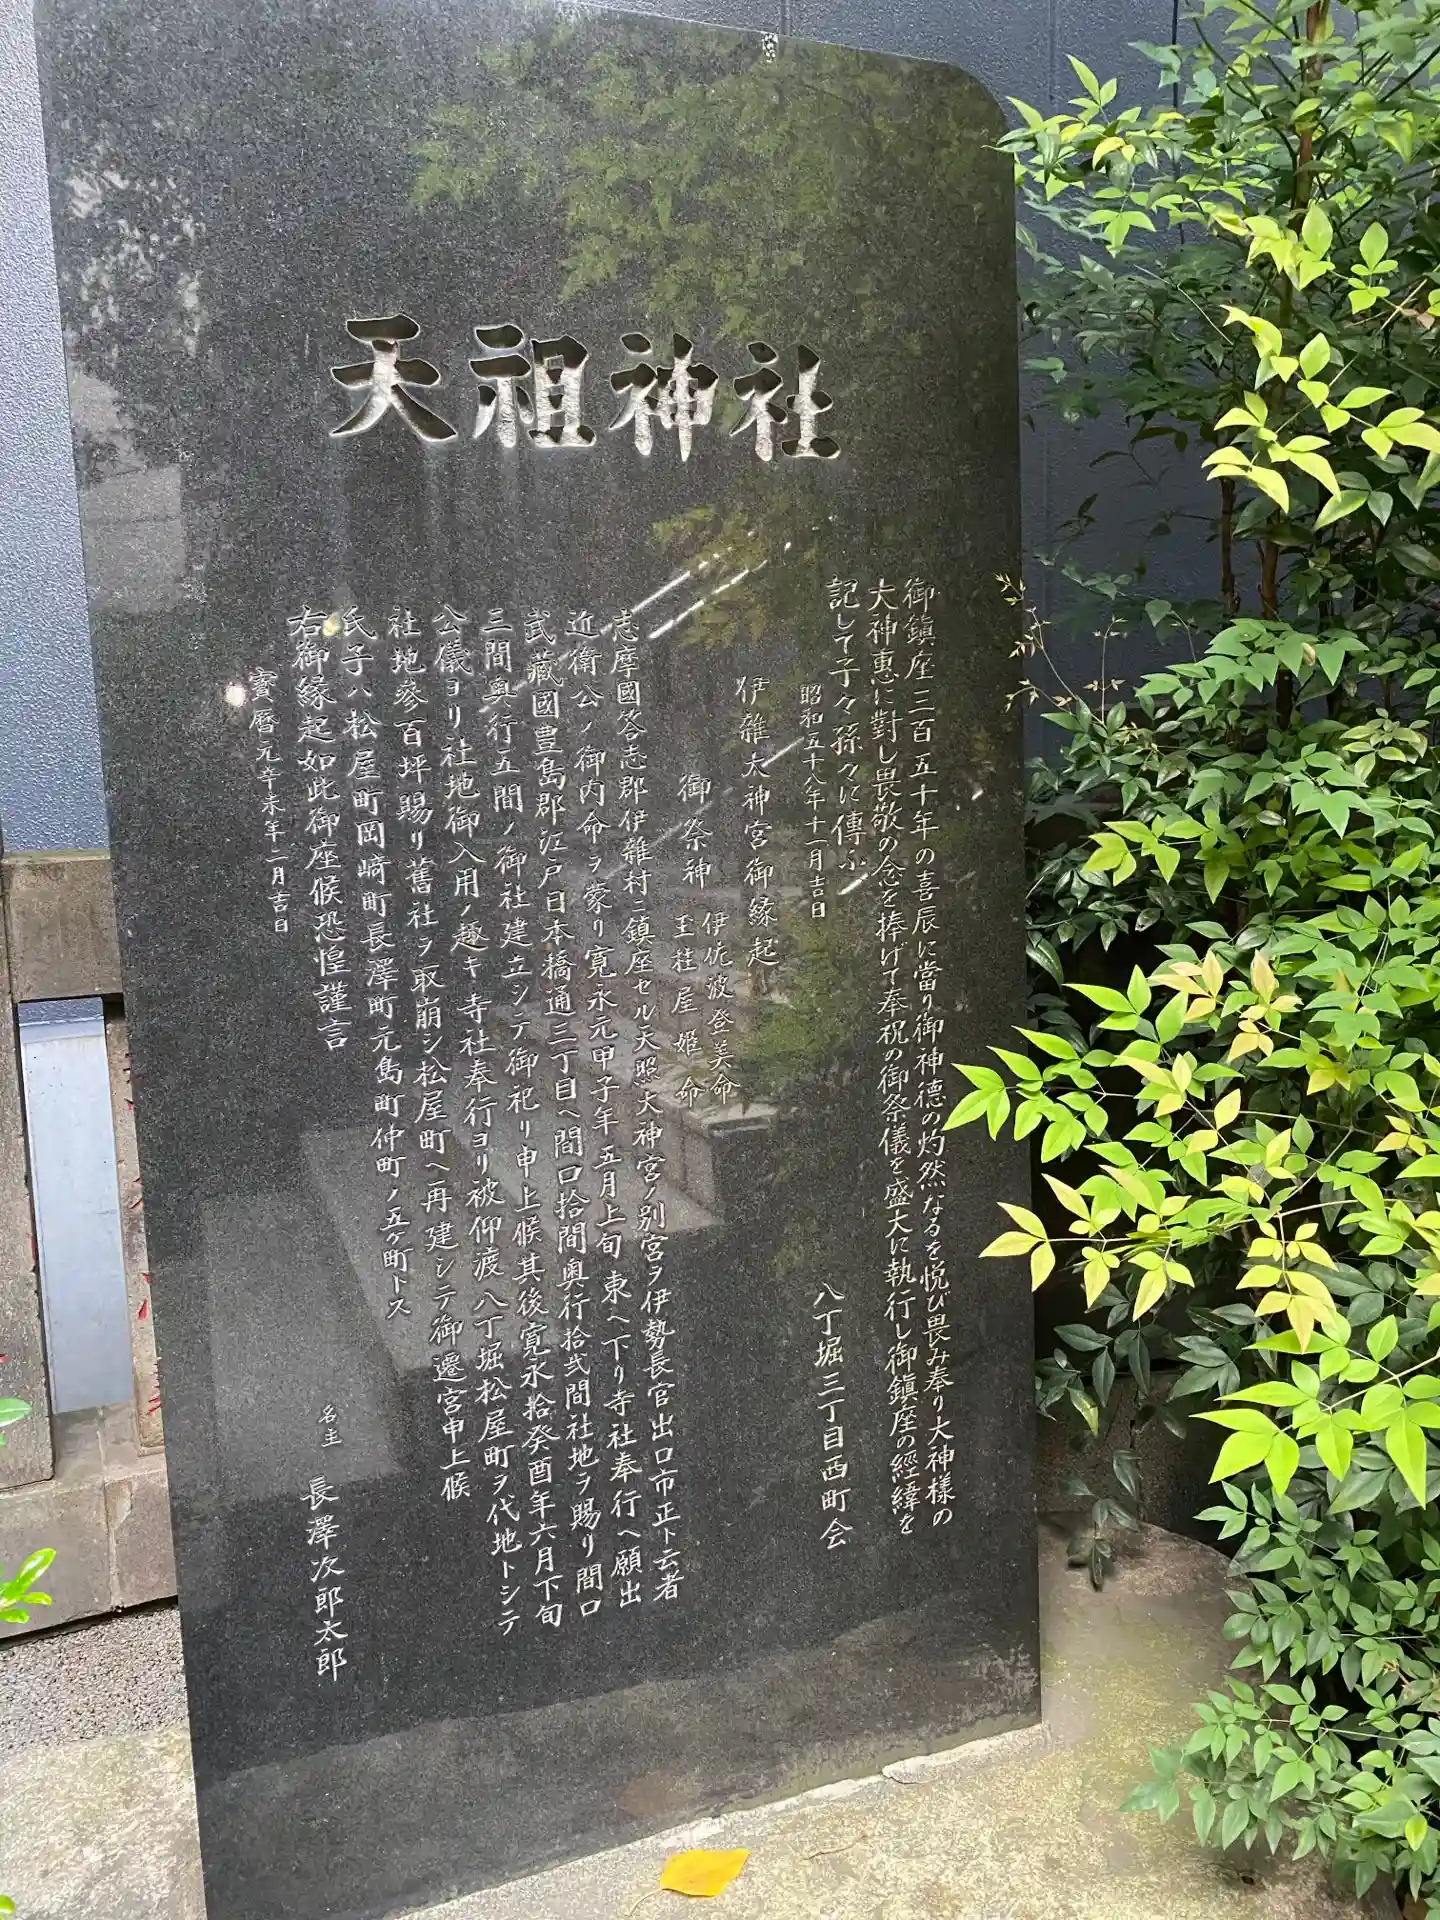 天祖神社
御鎮座三百五十年の喜辰に當り御神徳の灼然なるを悦び畏み奉り大神様の
大神恵に對し畏敬の念を捧げて奉祝の御祭儀を盛大に執行し御鎮座の經緯を
記して子々孫々に傳ふ
昭和五十八年十一月吉日
八丁堀三丁目西町会
伊雜太神宮御縁起
御祭神
伊佐波登美命
玉柱屋姫命
志摩國答志郡伊雜村ニ鎮座セル天照大神宮ノ別宮ヲ伊勢長官出口市正ト云者
近衛公ノ御内命ヲ蒙リ寛永元甲子年五月上旬東ヘ下リ寺社奉行ヘ願出
武藏國豊島郡江戸日本橋通三丁目ヘ間口拾間奥行拾弐間社地ヲ賜リ間口
三間奥行五間ノ御社建立シテ御祀リ申上候其後寛永拾癸酉年六月下旬
公儀ヨリ社地御入用ノ趣キ寺社奉行ヨリ被仰渡八丁堀松屋町ヲ代地トシテ
社地參百坪賜リ舊社ヲ取崩シ松屋町ヘ再建シテ御遷宮申上候
氏子ハ松屋町岡崎町長澤町元島町仲町ノ五ヶ町トス
右御縁起如此御座候恐惶謹言
寶暦元辛未年二月吉日
名主 長澤次郎太郎